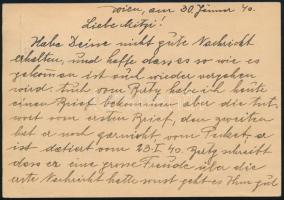 Wien, am 30. Jänner 40.
Liebe Mitzi!
Habe Deine nicht gute Nachricht
erhalten, und hoffe dass es so wie es
gekommen ist auch wieder vergehen
wird. Auch vom habe ich heute
einen Brief bekommen aber die Ant-
wort vom ersten Brief, den zweiten
hat er noch garnicht, vom Packet, er
ist datiert vom 23.I.40. schreibt
dass er eine grosse Freude über die
erste Nachricht hatte sonst geht es Ihm gut